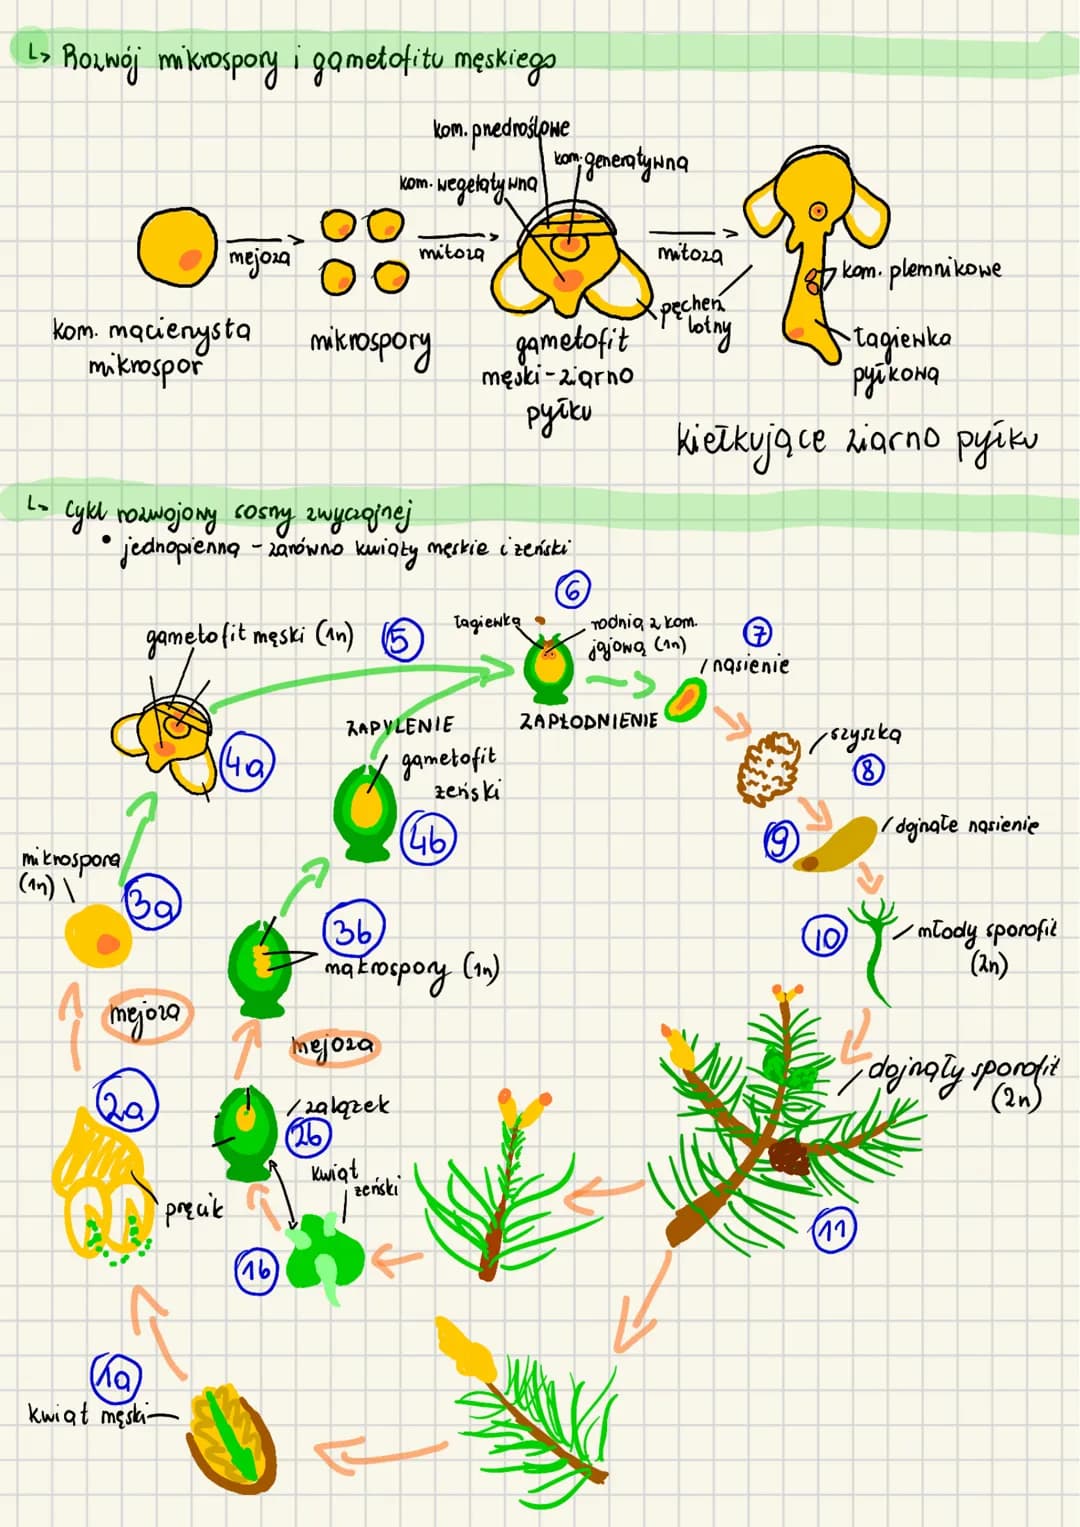 ↳ Rozwój mikrospory i gametofitu męskiego
kom. przedroślowe
kom. generatywna
kom. wegetatywna
mejoza
mitoza
mitoza
kom. plemnikowe
pęcherz
lotny
kom. macierzysta
mikrospor
mikrospory
gametofit
męski - ziarno
pyłku
łagiewka
pyłkowa
kiełkujące ziarno pyłku
↳ Cykl rozwojowy sosny zwyczajnej
• jednopienna - zarówno kwiaty męskie i żeński
6
gametofit męski (1n)
5
łagiewka
rodnia z kom.
jajową (1n)
7
nasienie
ZAPYLENIE
ZAPŁODNIENIE
szyszka
8
4a
gametofit
żeński
4b
9
dojrzałe nasienie
mikrospora
(1n)
3a
3b
makrospory (1n)
10
młody sporofit
(2n)
mejoza
mejoza
dojrzały sporofit
(2n)
2a
zalążek
2b
kwiat
żeński
pręcik
11
1b
1a
kwiat męski